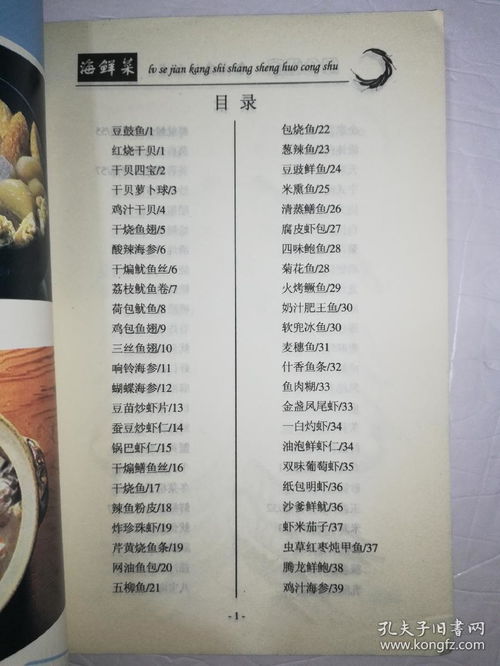 海鲜菜
lv se jian kang shi shang sheng huo cong shu
目录
豆鼓鱼/1
红烧干贝/1
干贝四宝/2
干贝萝卜球/3
鸡汁干贝/4
干烧鱼翅/5
酸辣海参/6
干煸鱿鱼丝/6
荔枝鱿鱼卷/7
荷包鱿鱼/8
鸡包鱼翅/9
三丝鱼翅/10
响铃海参/11
蝴蝶海参/12
豆苗炒虾片/13
蚕豆炒虾仁/14
锅巴虾仁/15
干煸鳝鱼丝/16
干烧鱼/17
辣鱼粉皮/18
炸珍珠虾/19
芹黄烧鱼条/19
网油鱼包/20
五柳鱼/21
包烧鱼/22
葱辣鱼/23
豆豉鲜鱼/24
米熏鱼/25
清蒸鳝鱼/26
腐皮虾包/27
四味鲍鱼/28
菊花鱼/28
火烤鳜鱼/29
奶汁肥王鱼/30
软兜冰鱼/30
麦穗鱼/31
什香鱼条/32
鱼肉糊/33
金盏凤尾虾/33
一白灼虾/34
油泡鲜虾仁/34
双味葡萄虾/35
纸包明虾/36
沙爹鲜鱿/36
虾米茄子/37
虫草红枣炖甲鱼/37
腾龙鲜鲍/38
鸡汁海参/39
- 1 -
孔夫子旧书网
www.kongfz.com